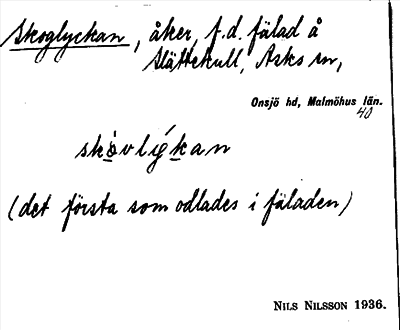 Skoglyckan, åker, f.d. fälad å
Slättekull, Asks sn,
Onsjö hd, Malmöhus län.
40
skòvlíkan
(det första som odlades i fäladen)
NILS NILSSON 1936.